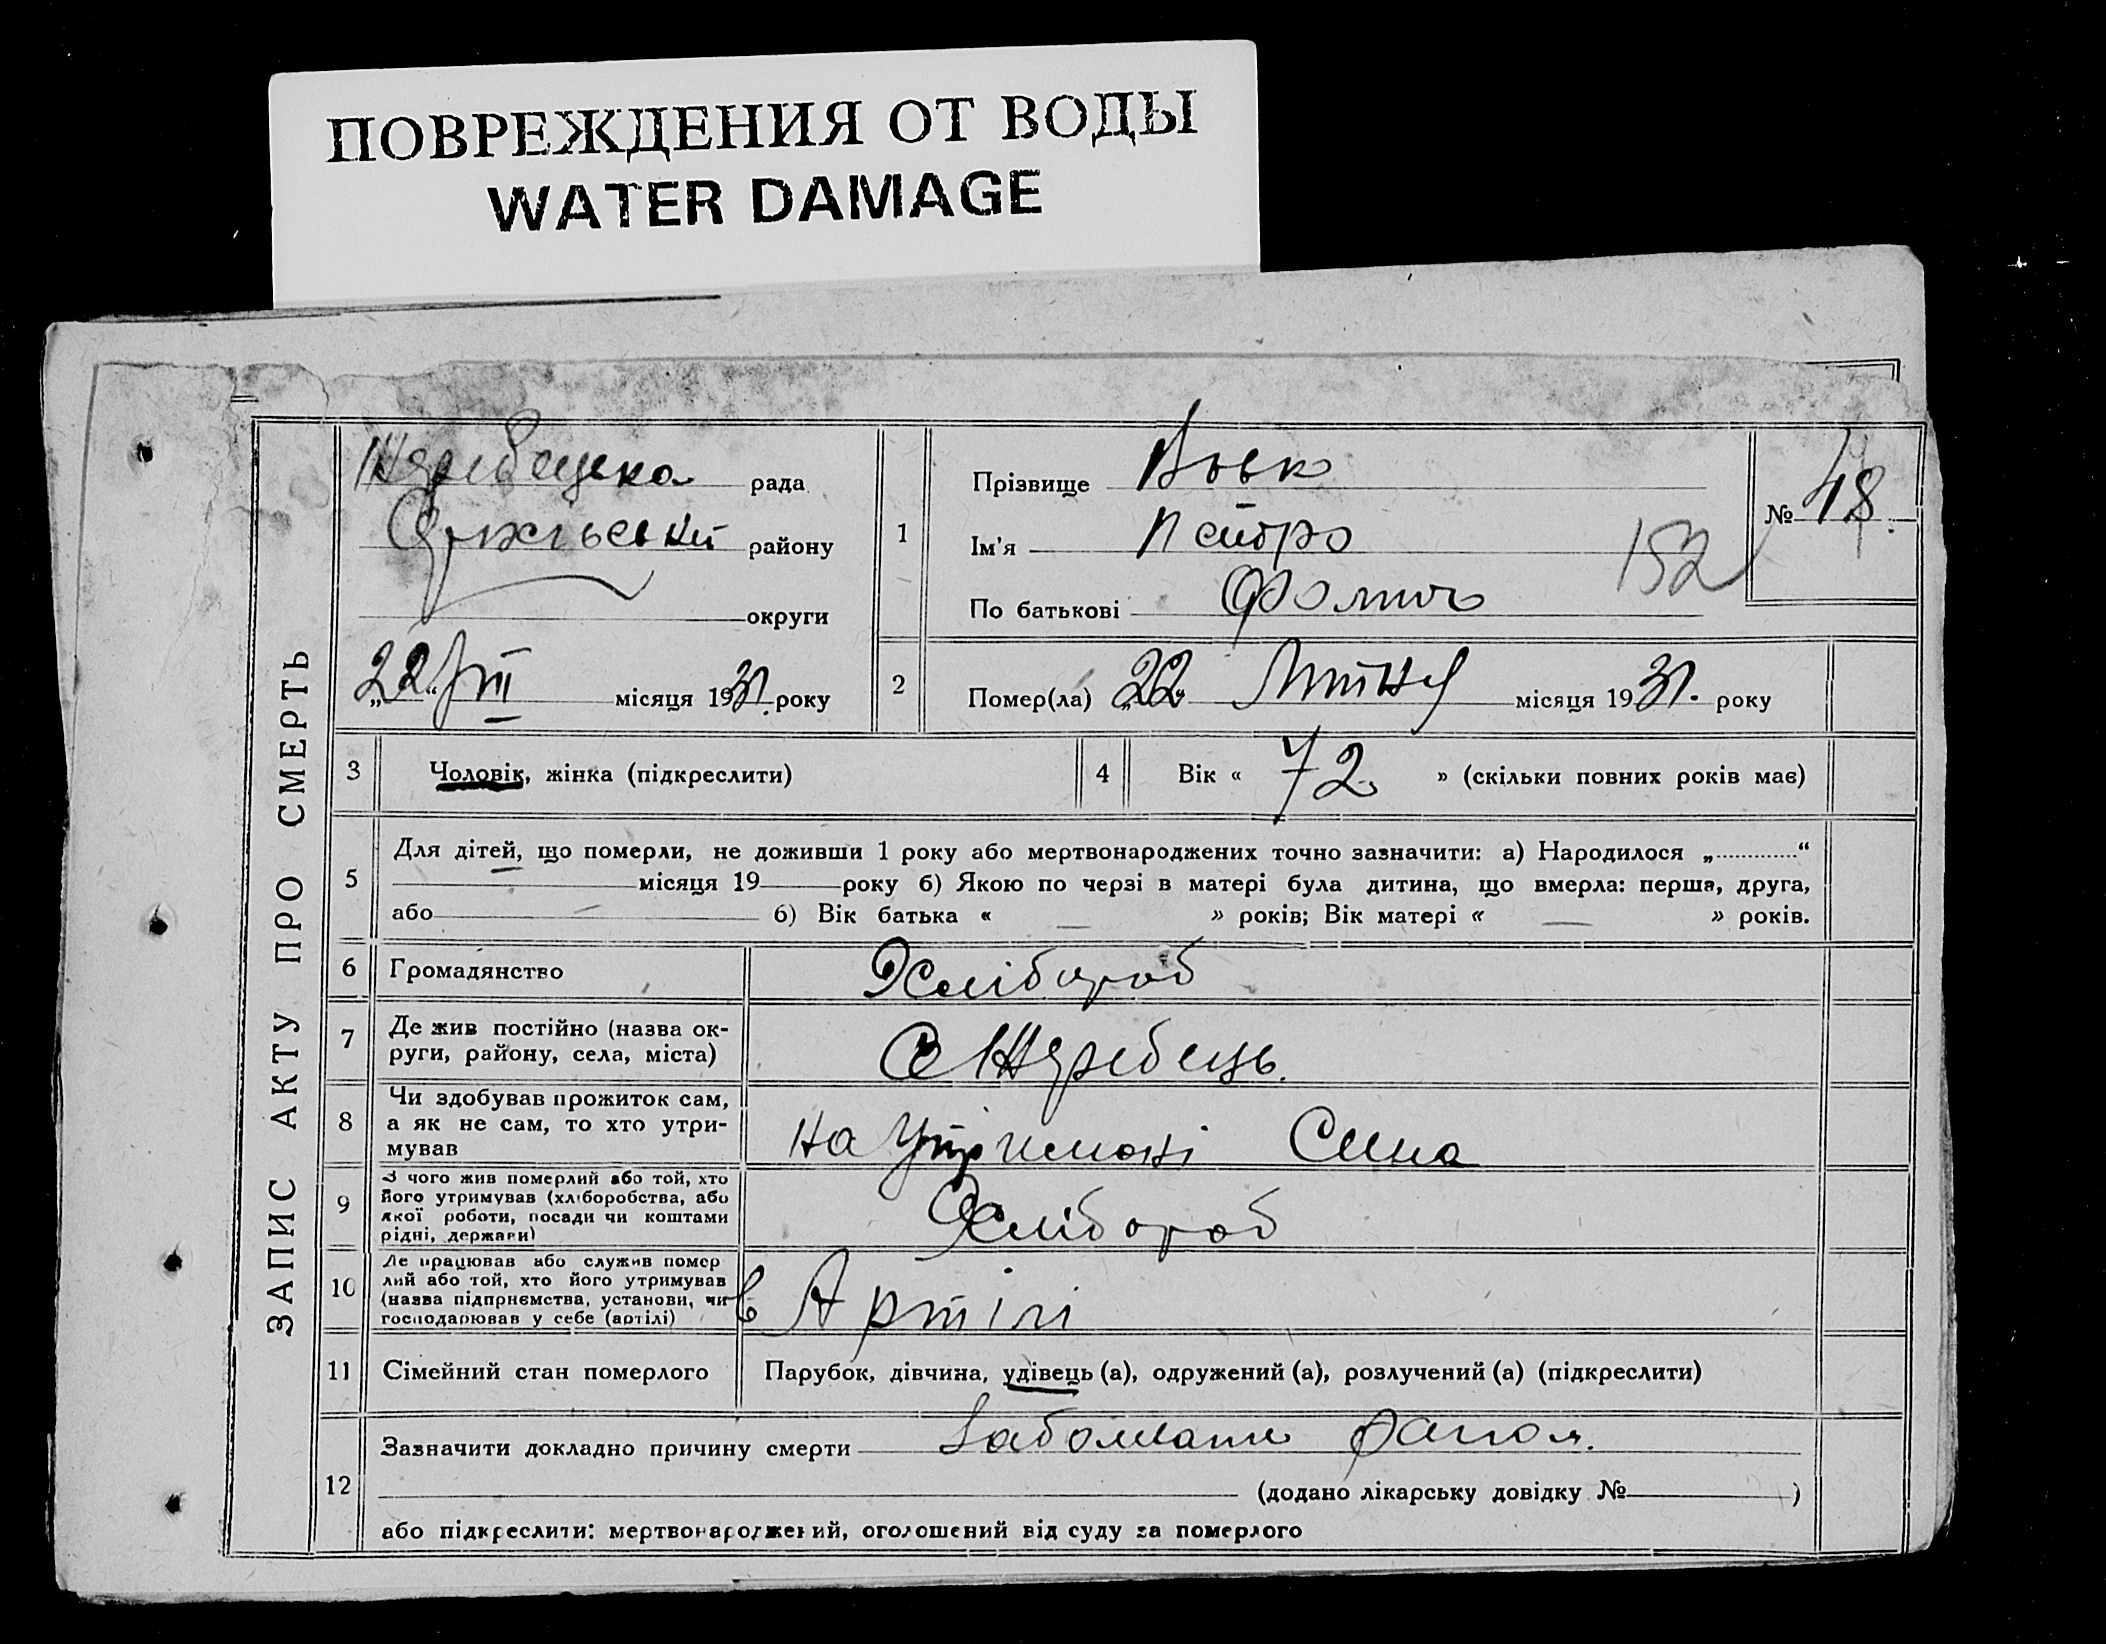 ПОВРЕЖДЕНИЯ ОТ ВОДЫ
WATER DAMAGE
ЗАПИС АКТУ ПРО СМЕРТЬ
Жеребецька рада
Оріхівський району
округи
„22“ VII місяця 1931 року
1
Прізвище Вовк
Ім'я Петро
По батькові Фомич
№ 48
152
2
Помер(ла) „22“ Липня місяця 1931. року
3 Чоловік, жінка (підкреслити)
4 Вік « 72 » (скільки повних років має)
5 Для дітей, що померли, не доживши 1 року або мертвонароджених точно зазначити: а) Народилося „ “
місяця 19 року б) Якою по черзі в матері була дитина, що вмерла: перша, друга,
або б) Вік батька « — » років; Вік матері « — » років.
6 Громадянство Хлібороб
7 Де жив постійно (назва ок-
руги, району, села, міста) С Жеребець.
8 Чи здобував прожиток сам,
а як не сам, то хто утри-
мував на утримані Сина
9 З чого жив померлий або той, хто
його утримував (хліборобства, або
якої роботи, посади чи коштами
рідні, держави) Хлібороб
10 Де працював або служив помер
лий або той, хто його утримував
(назва підприємства, установи, чи
господарював у себе (артілі) в Артілі
11 Сімейний стан померлого Парубок, дівчина, удівець (а), одружений (а), розлучений (а) (підкреслити)
12 Зазначити докладно причину смерти
(додано лікарську довідку № )
або підкреслити: мертвонароджений, оголошений від суду за померлого